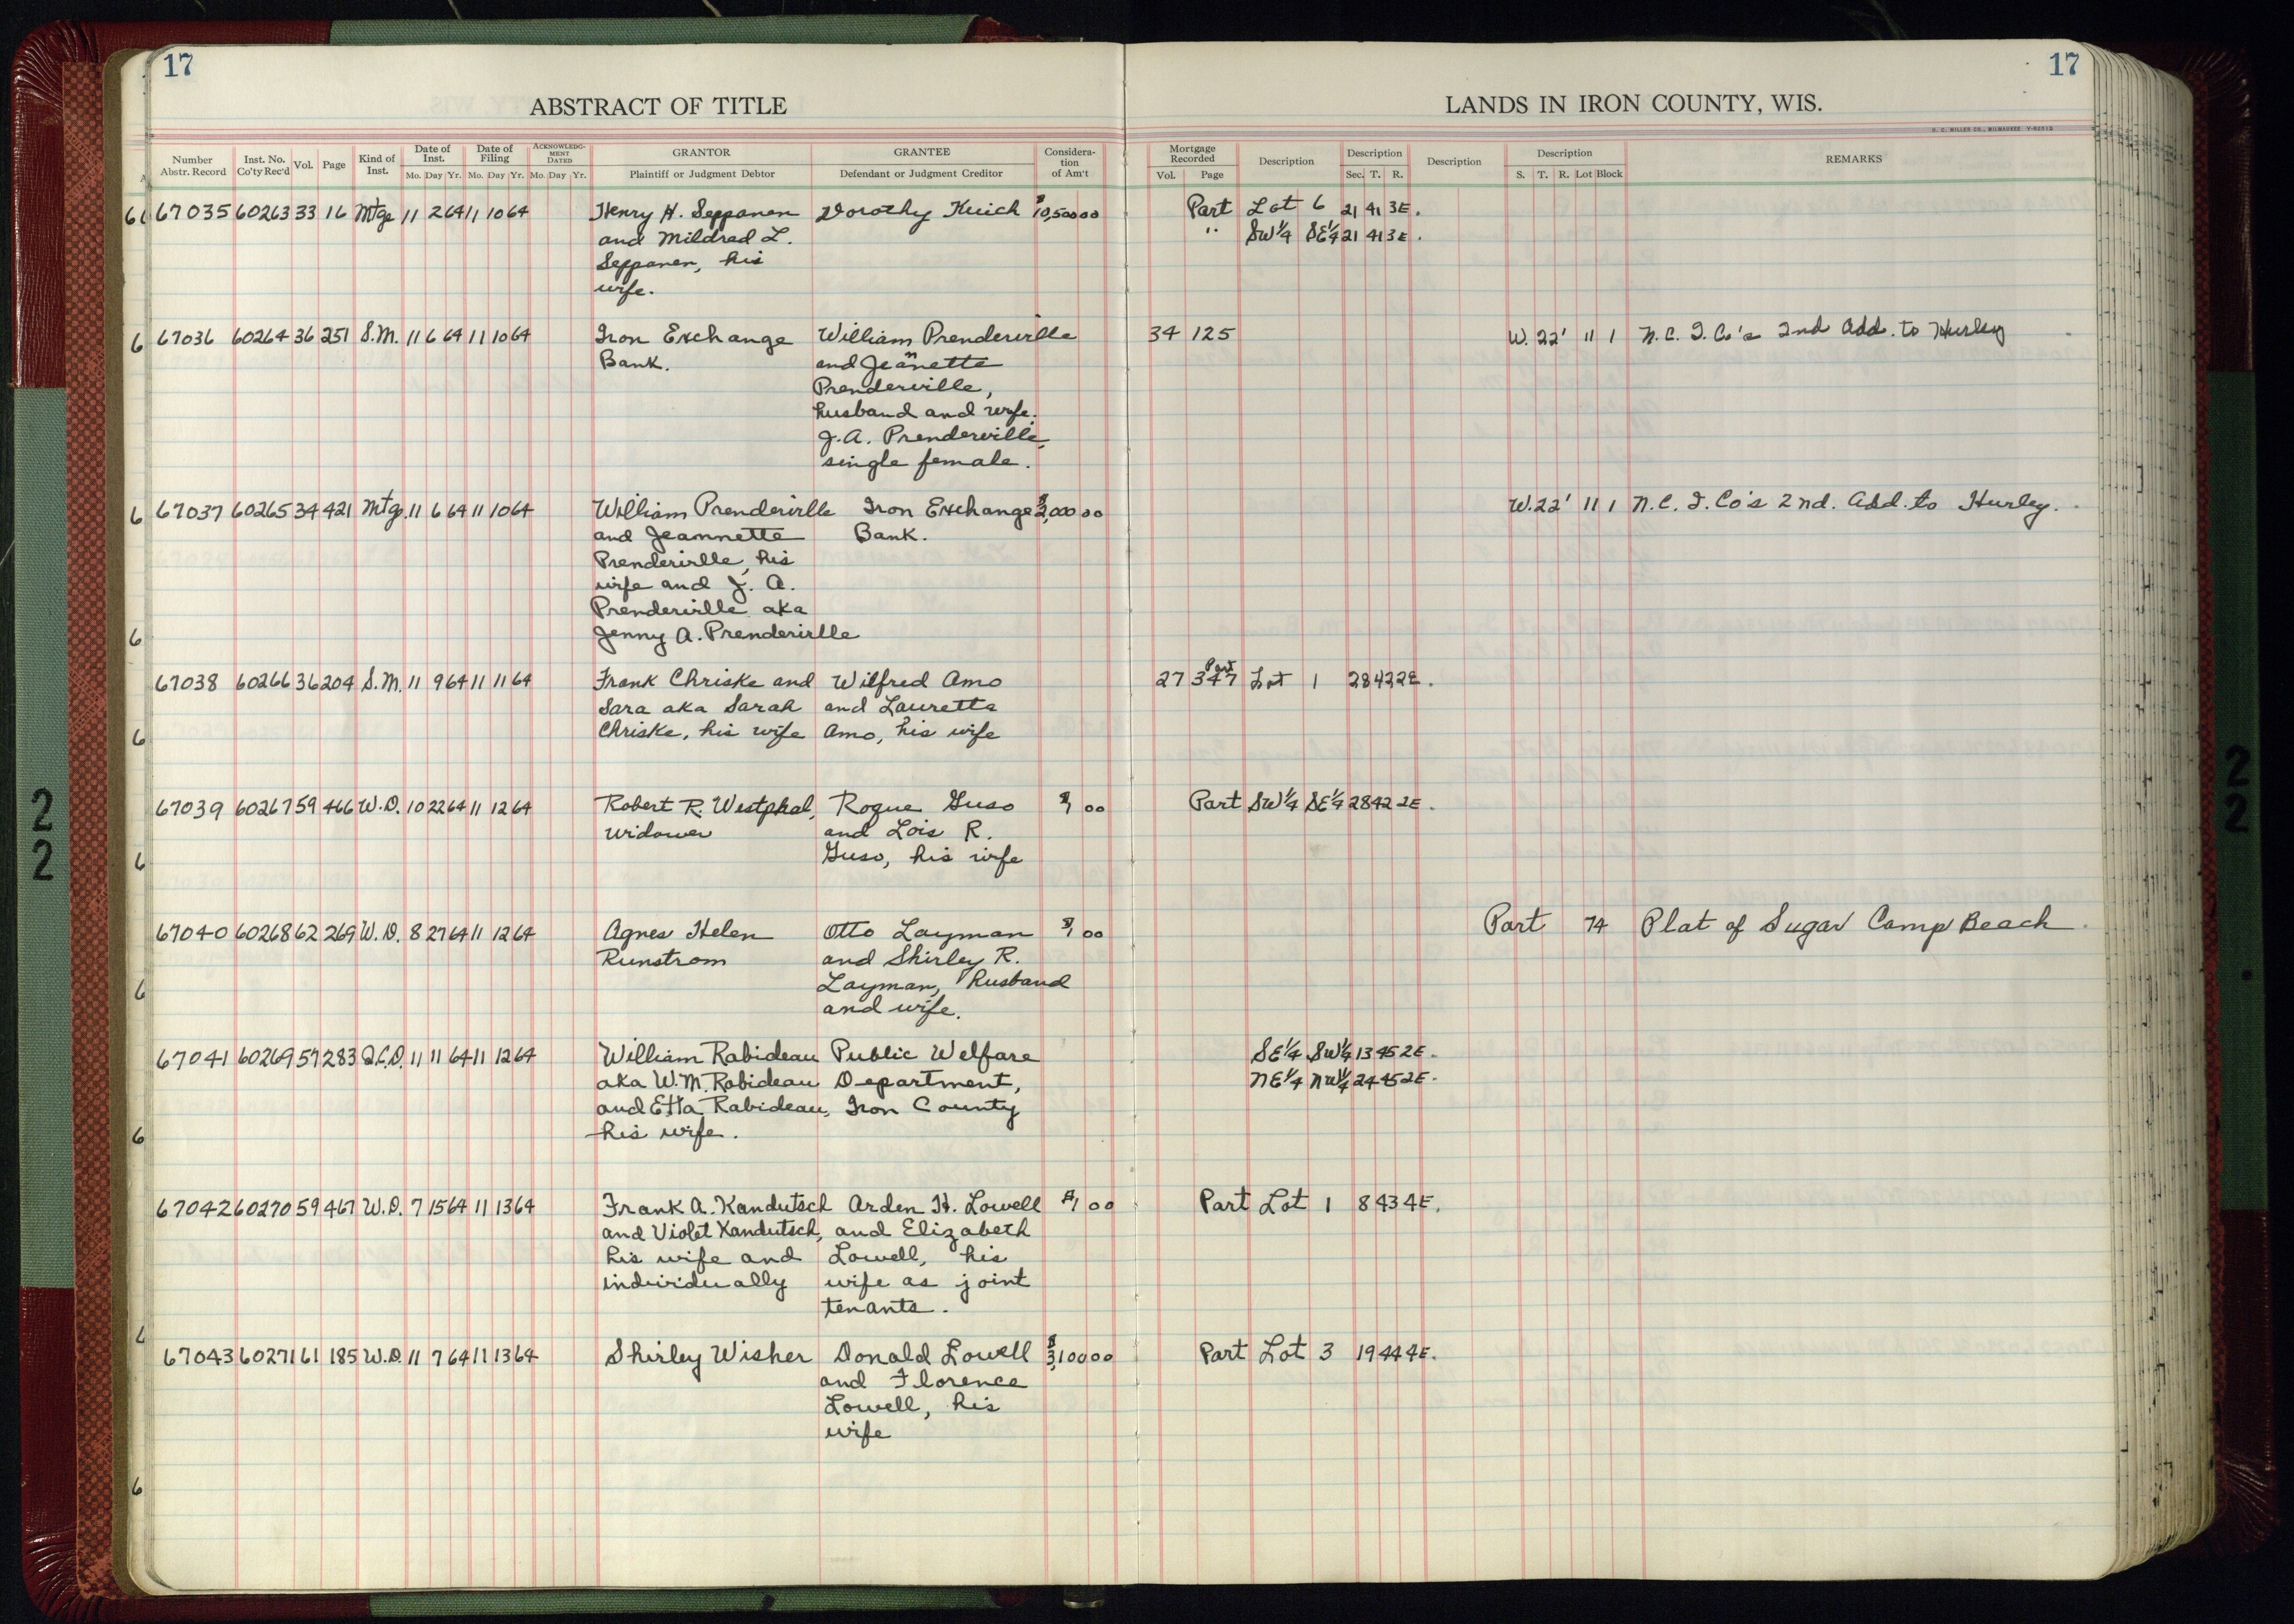 17
17
ABSTRACT OF TITLE
LANDS IN IRON COUNTY, WIS.
H. C. MILLER CO., MILWAUKEE
Number Abstr. Record Inst. No. Co'ty Rec'd Vol. Page Kind of Inst. Date of Inst. Mo. Day Yr. Date of Filing Mo. Day Yr. ACKNOWLEDGMENT DATED Mo. Day Yr. GRANTOR Plaintiff or Judgment Debtor GRANTEE Defendant or Judgment Creditor Consideration of Am't Mortgage Recorded Vol. Page Description Description Sec. T. R. Description Description S. T. R. Lot Block REMARKS
67035 60263 33 16 Mtge 11 2 64 11 10 64 Henry H. Seppanen Dorothy Kuich $10,500 00 Part Lot 6 21 41 3E.
and Mildred L. " SW¼ SE¼ 21 41 3E.
Seppanen, his
wife.
67036 60264 36 251 S.M. 11 6 64 11 10 64 Iron Exchange William Prenderville 34 125 W. 22' 11 1 N.C.I. Co's 2nd Add. to Hurley
Bank. and Jeannette
Prenderville,
husband and wife.
J.A. Prenderville,
single female.
67037 60265 34 421 Mtge. 11 6 64 11 10 64 William Prenderville Iron Exchange $2,000 00 W. 22' 11 1 N.C.I. Co's 2nd. Add. to Hurley.
and Jeannette Bank.
Prenderville, his
wife and J. A.
Prenderville aka
Jenny A. Prenderville
67038 60266 36 204 S.M. 11 9 64 11 11 64 Frank Chriske and Wilfred Amo 27 347 Part Lot 1 28 42 2E.
Sara aka Sarah and Lauretta
Chriske, his wife Amo, his wife
67039 60267 59 466 W.D. 10 22 64 11 12 64 Robert R. Westphal, Rogue Guso $1 00 Part SW¼ SE¼ 28 42 2E.
widower and Lois R.
Guso, his wife
67040 60268 62 269 W.D. 8 27 64 11 12 64 Agnes Helen Otto Layman $1 00 Part 74 Plat of Sugar Camp Beach
Runstrom and Shirley R.
Layman, husband
and wife.
67041 60269 57 283 Q.C.D. 11 11 64 11 12 64 William Rabideau Public Welfare SE¼ SW¼ 13 45 2E.
aka W.M. Rabideau Department, NE¼ NW¼ 24 45 2E.
and Etta Rabideau, Iron County
his wife.
67042 60270 59 467 W.D. 7 15 64 11 13 64 Frank A. Kandutsch Arden H. Lowell $1 00 Part Lot 1 8 43 4E.
and Violet Kandutsch, and Elizabeth
his wife and Lowell, his
individually wife as joint
tenants.
67043 60271 61 185 W.D. 11 7 64 11 13 64 Shirley Wisher Donald Lowell $3,100 00 Part Lot 3 19 44 4E.
and Florence
Lowell, his
wife
22
22